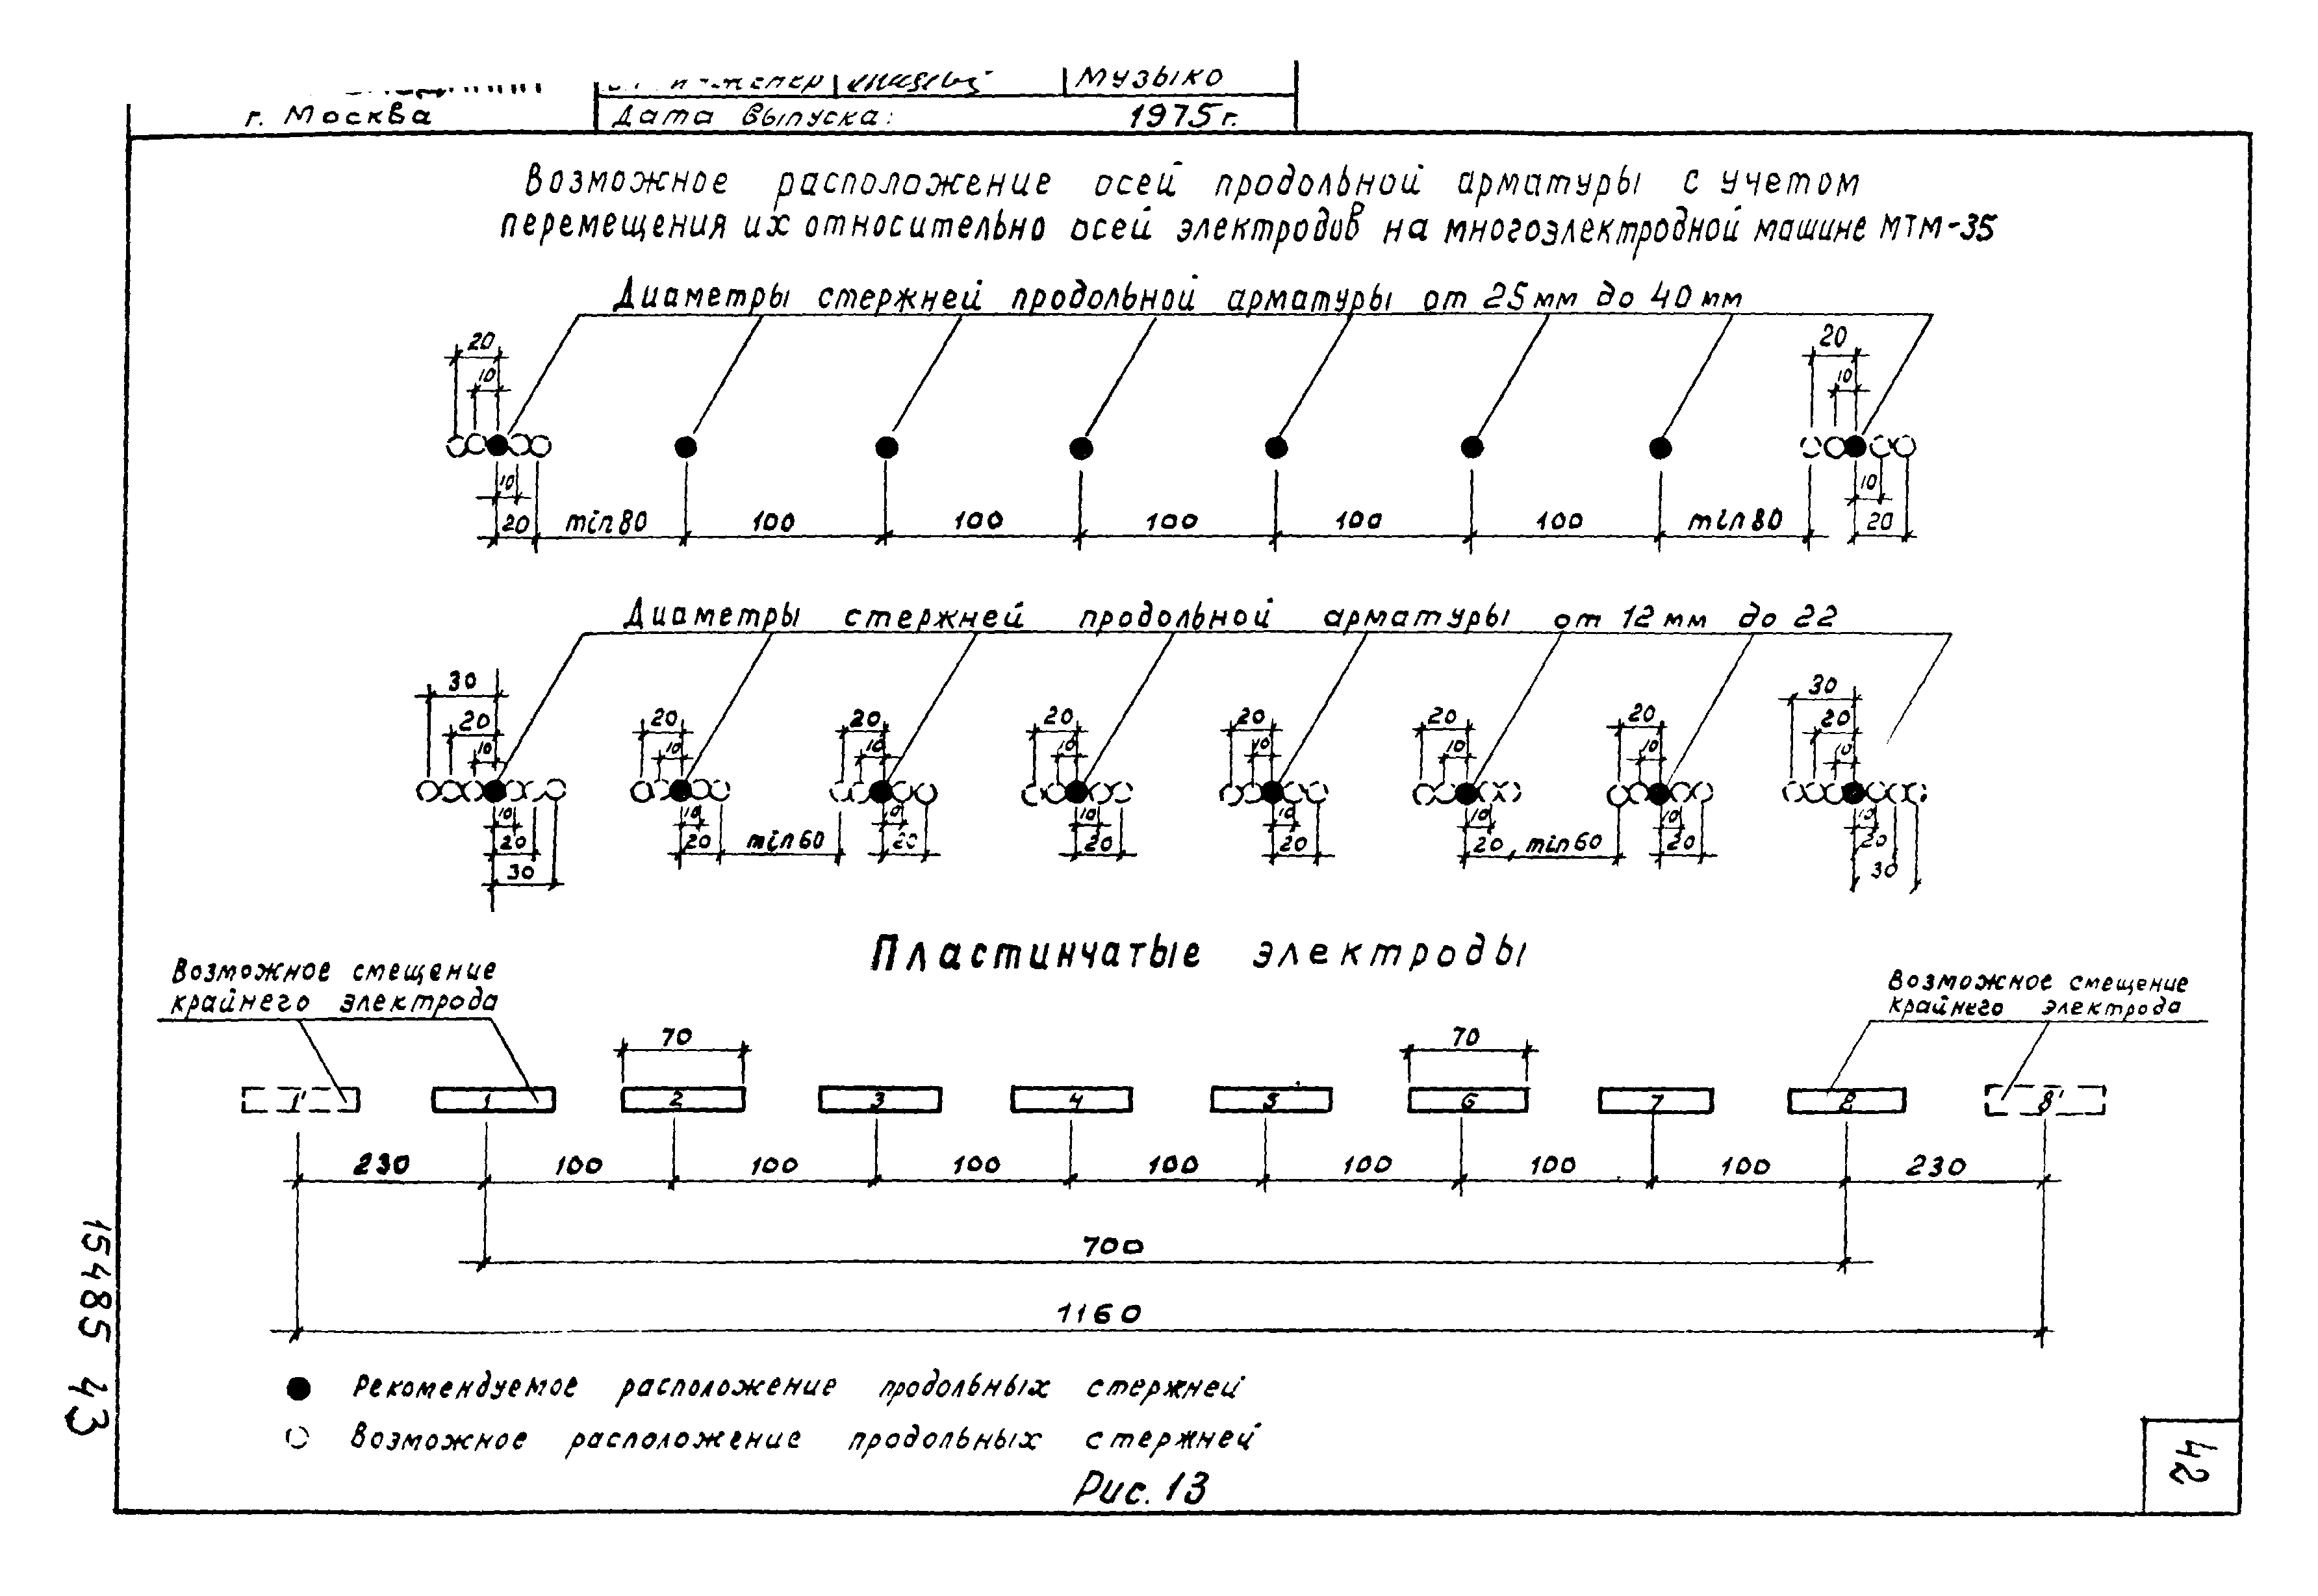 Музыко
г. Москва
Дата выпуска: 1975 г.
Возможное расположение осей продольной арматуры с учетом
перемещения их относительно осей электродов на многоэлектродной машине МТМ-35
Диаметры стержней продольной арматуры от 25 мм до 40 мм
20 20
10 10
10 10
20 min 80 100 100 100 100 100 min 80 20
Диаметры стержней продольной арматуры от 12 мм до 22
30 30
20 20 20 20 20 20 20 20
10 10 10 10 10 10 10 10
10 10 10 10 10 10 10 10
20 20 min 60 20 20 20 20 min 60 20 20
30 30
Пластинчатые электроды
Возможное смещение
крайнего электрода
Возможное смещение
крайнего электрода
70 70
1' 1 2 3 4 5 6 7 8 8'
230 100 100 100 100 100 100 100 230
700
1160
Рекомендуемое расположение продольных стержней
Возможное расположение продольных стержней
Рис. 13
15485 43
42